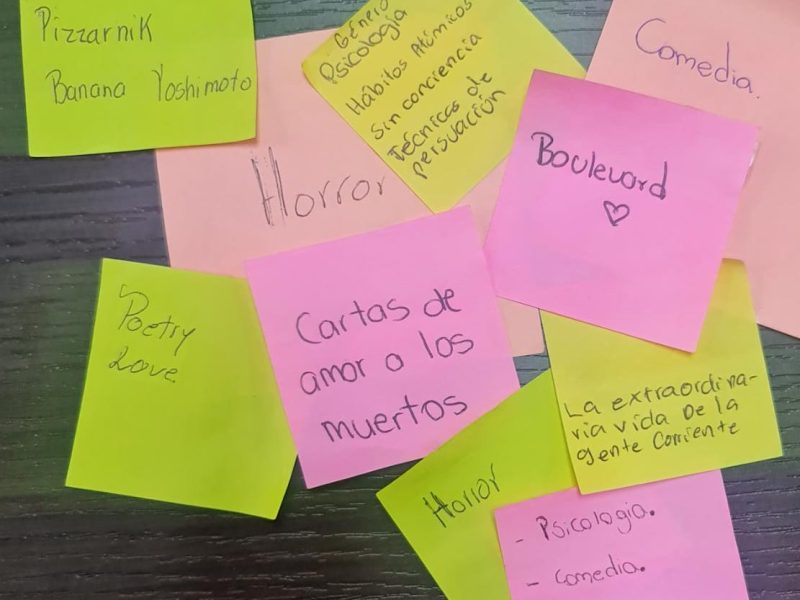 Pizzarnik
Banana Yoshimoto
Género
Psicología
Hábitos Atómicos
Sin conciencia
Técnicas de
persuación
Comedia.
Horror
Boulevard
♡
Poetry
Love.
Cartas de
amor a los
muertos
La extraordina-
ria vida De la
gente Corriente
Horror
- Psicologia.
- Comedia.